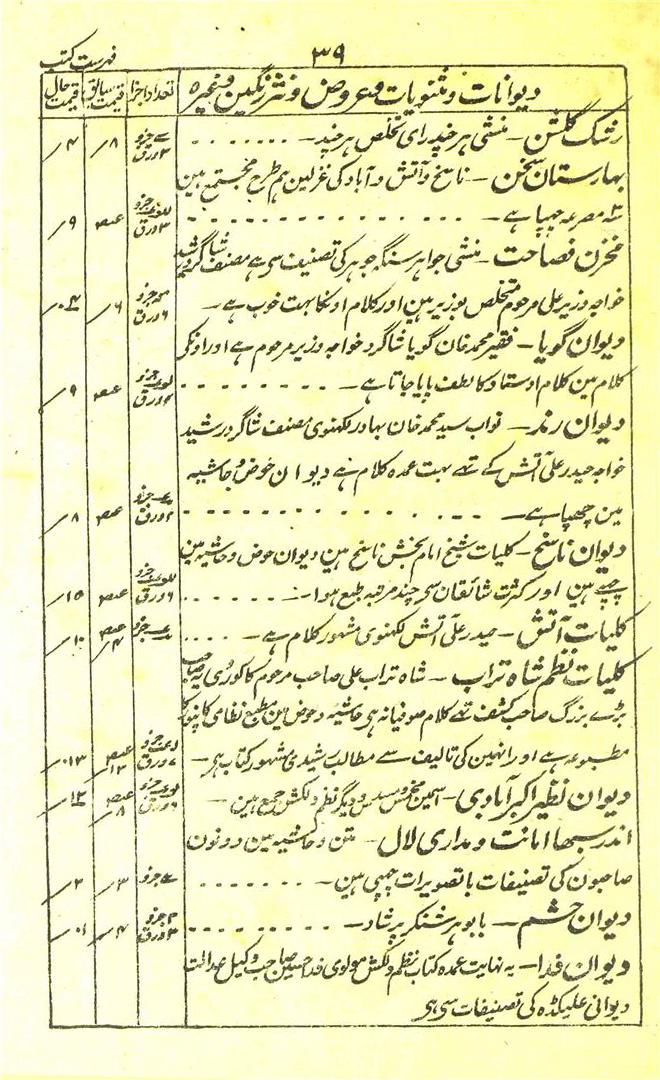 ۳۹
فہرست کتب
دیوانات و مثنویات و عروض و نثر رنگین وغیرہ
تعداد اجزا
قیمت سابق
قیمت حال
رشک گلشن۔ منشی ہر چند رای تخلص ہر چند۔ ۸/ ۴/
بہارستان سخن۔ ناسخ و آتش و آباد کی غزلین ہم طرح مجتمع ہین
سہ مصرعہ چھپا ہے۔ ۹/
مخزن فصاحت۔ منشی جواہر سنگہ جوہر کی تصنیف سی ہے مصنف شاگرد رشید
خواجہ وزیر علی مرحوم متخلص بوزیر ہین اور کلام اونکا بہت خوب ہے۔ ۶/
دیوان گویا۔ فقیر محمد خان گویا شاگرد خواجہ وزیر مرحوم ہے اور اونکی
کلام مین کلام اوستاد کا لطف پایا جاتا ہے۔ ۹/
دیوان رند۔ نواب سید محمد خان بہادر لکھنوی مصنف شاگرد رشید
خواجہ حیدر علی آتش کے تھے بہت عمدہ کلام ہے دیوان حوض و حاشیہ
مین چھپا ہے۔ ۸/
دیوان ناسخ۔ کلیات شیخ امام بخش ناسخ ہین دیوان حوض و حاشیہ مین
چھپے ہین اور کثرت شائقان سی چند مرتبہ طبع ہوا۔ ۱۵/
کلیات آتش۔ حیدر علی آتش لکھنوی مشہور کلام ہے۔ ۱۰/
کلیات نظم شاہ تراب۔ شاہ تراب علی صاحب مرحوم کاکوری یہ صاحب
بڑے بزرگ صاحب کشف تھے کلام صوفیانہ ہی حاشیہ و حوض مین مطبع نظامی کانپور کا
مطبوعہ ہے اور انہین کی تالیف سے مطالب رشیدی مشہور کتاب ہی۔
دیوان نظیر اکبر آبادی۔ اسمین مخمس و مسدس و دیگر نظم دلکش جمع ہین۔
اندر سبھا امانت و مداری لال۔ متن و حاشیہ مین دونون
صاحبون کی تصنیفات با تصویرات چھپی ہین۔ ۳/ ۲/
دیوان حشم۔ بابو ہر شنکر پرشاد۔ ۴/
دیوان فدا۔ یہ نہایت عمدہ کتاب نظم دلکش مولوی فدا حسین صاحب وکیل عدالت
دیوانی علیگڈہ کی تصنیفات سی ہی